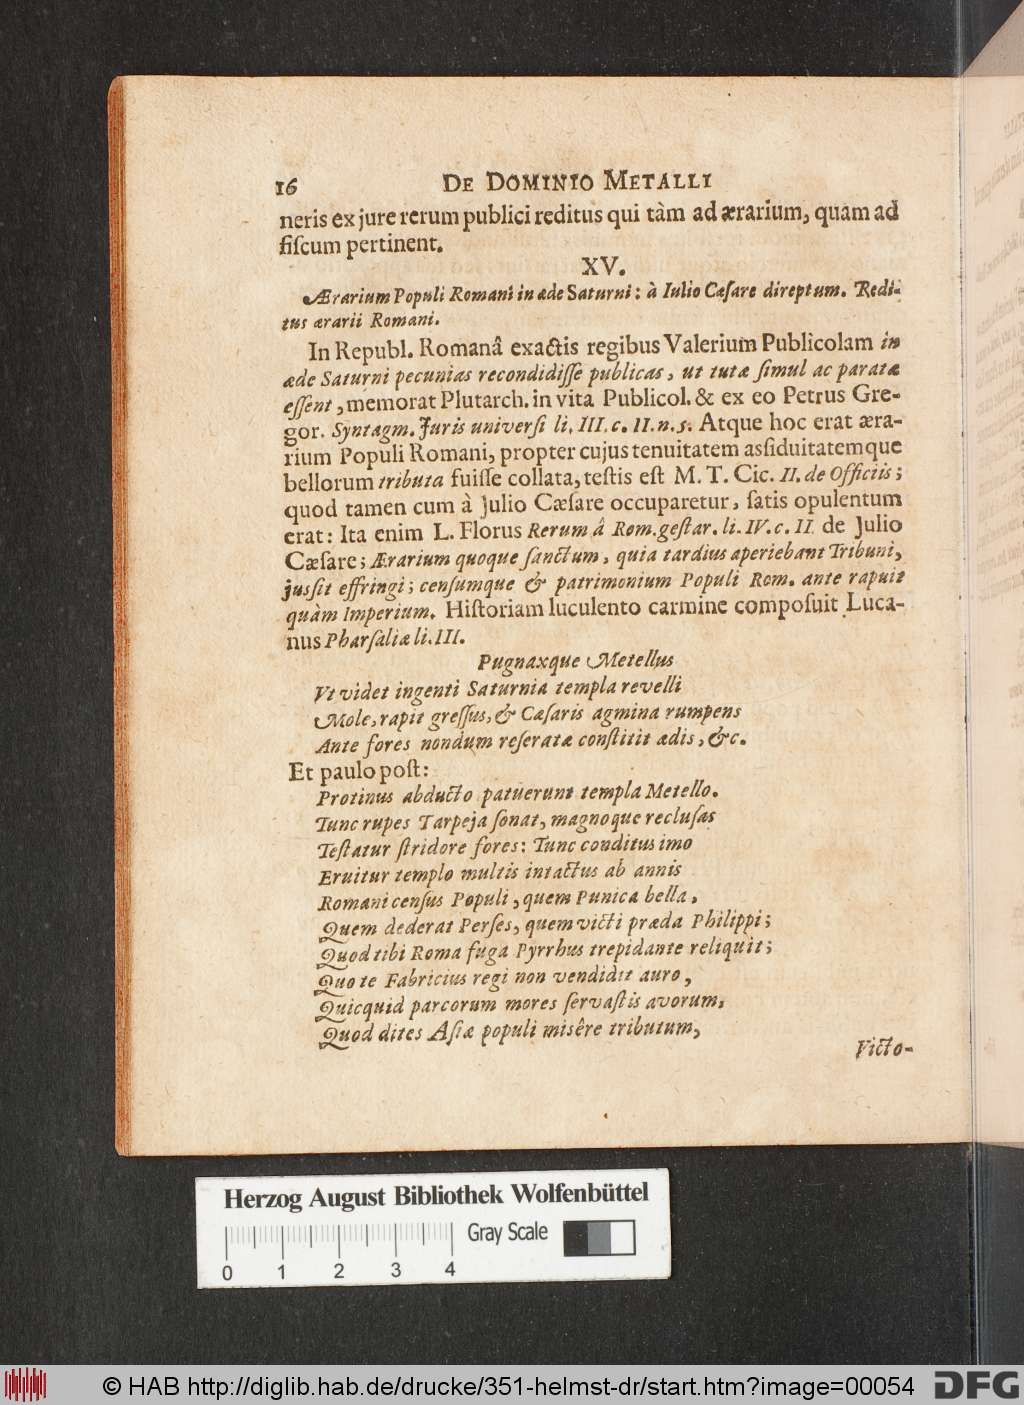 16 DE DOMINIO METALLI
neris ex jure rerum publici reditus qui tàm ad ærarium, quam ad
fiſcum pertinent.
XV.
Ærarium Populi Romani in æde Saturni: à Iulio Cæſare direptum. Redi-
tus ærarii Romani.
In Republ. Romanâ exactis regibus Valerium Publicolam in
æde Saturni pecunias recondidiſſe publicas, ut tutæ ſimul ac paratæ
eſſent, memorat Plutarch. in vita Publicol. & ex eo Petrus Gre-
gor. Syntagm. Juris univerſi li. III. c. II. n. 5. Atque hoc erat æra-
rium Populi Romani, propter cujus tenuitatem asſiduitatemque
bellorum tributa fuiſſe collata, teſtis eſt M. T. Cic. II. de Officiis;
quod tamen cum à Julio Cæſare occuparetur, ſatis opulentum
erat: Ita enim L. Florus Rerum â Rom. geſtar. li. IV. c. II de Julio
Cæſare; Ærarium quoque ſanctum, quia tardius aperiebant Tribuni,
jusſit effringi; cenſumque & patrimonium Populi Rom. ante rapuit
quàm Imperium. Hiſtoriam luculento carmine compoſuit Luca-
nus Pharſaliæ li. III.
Pugnaxque Metellus
Vt videt ingenti Saturnia templa revelli
Mole, rapit greſſus, & Cæſaris agmina rumpens
Ante fores nondum reſeratæ conſtitit ædis, &c.
Et paulo poſt:
Protinus abducto patuerunt templa Metello.
Tunc rupes Tarpeja ſonat, magnoque recluſas
Teſtatur ſtridore fores: Tunc conditus imo
Eruitur templo multis intactus ab annis
Romani cenſus Populi, quem Punica bella,
Quem dederat Perſes, quem victi præda Philippi;
Quod tibi Roma fuga Pyrrhus trepidante reliquit;
Quo te Fabricius regi non vendidit auro,
Quicquid parcorum mores ſervaſtis avorum,
Quod dites Aſiæ populi misêre tributum,
Victo-
Herzog August Bibliothek Wolfenbüttel
Gray Scale
0 1 2 3 4
© HAB http://diglib.hab.de/drucke/351-helmst-dr/start.htm?image=00054 DFG